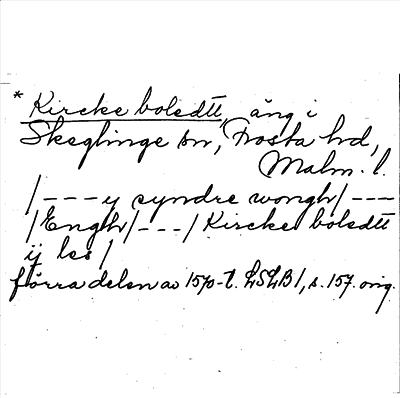 * Kircke boledtt, äng i
Skeglinge sn, Frosta hd,
Malm. l.
/ - - - y syndre wongh/ - - -
/Engh/ - - - / Kircke boledtt
ij les /
förra delen av 1570-t. LSLB 1, s. 157. orig.